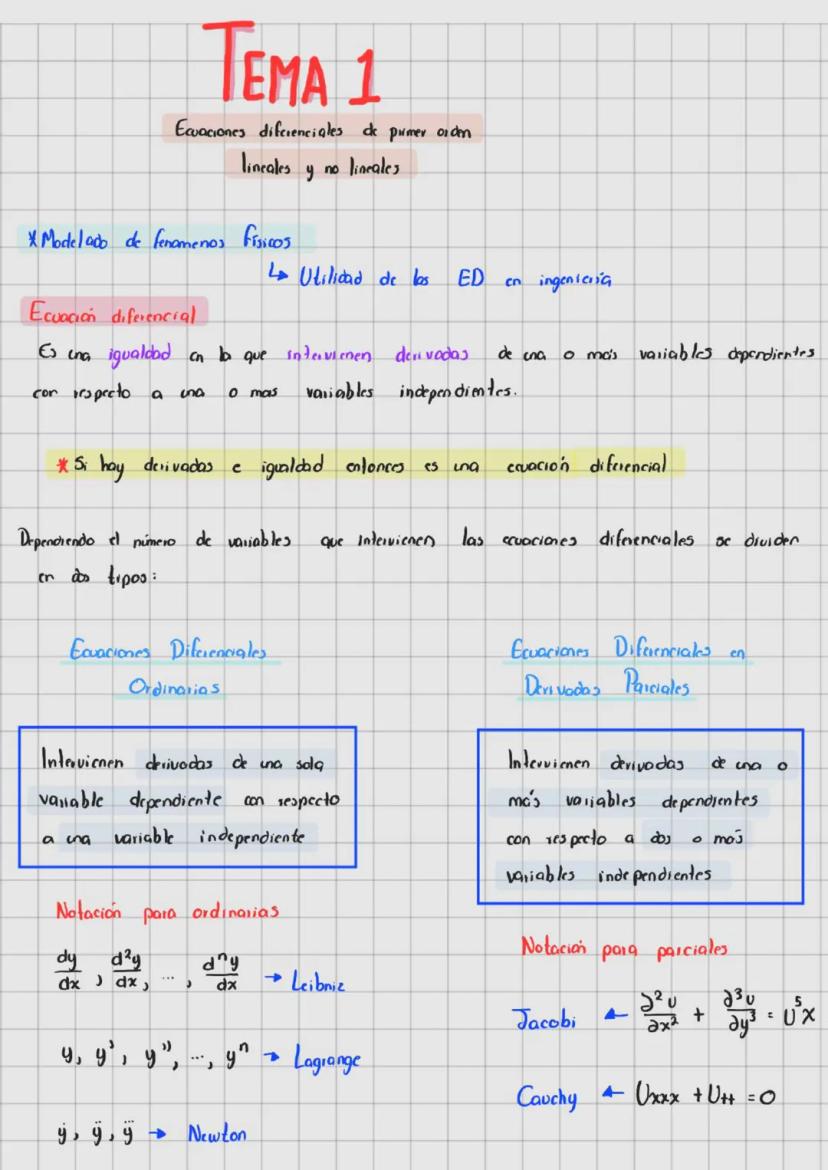 TEMA 1
Ecuaciones diferenciales de primer orden
lineales y no lineales
*Modelado de fenomenos físicos
↳ Utilidad de las ED en ingeniería
Ecuación diferencial
Es una igualdad en la que intervienen derivadas de una o más variables dependientes
con respecto a una o mas variables independientes.
* Si hay derivadas e igualdad entonces es una ecuación diferencial
Dependiendo el número de variables que intervienen las ecuaciones diferenciales se dividen
en dos tipos:
Ecuaciones Diferenciales
Ordinarias
Intervienen derivadas de una sola
variable dependiente con respecto
a una variable independiente
Notación para ordinarias
dy/dx, d²y/dx, ..., dⁿy/dx → Leibniz
y, y', y'', ..., yⁿ → Lagrange
ẏ, ÿ, ÿ → Newton
Ecuaciones Diferenciales en
Derivadas Parciales
Intervienen derivadas de una o
más variables dependientes
con respecto a dos o más
variables independientes
Notación para parciales
Jacobi ← ∂²u/∂x² + ∂³u/∂y³ = U⁵X
Cauchy ← Uxxx + Utt = 0